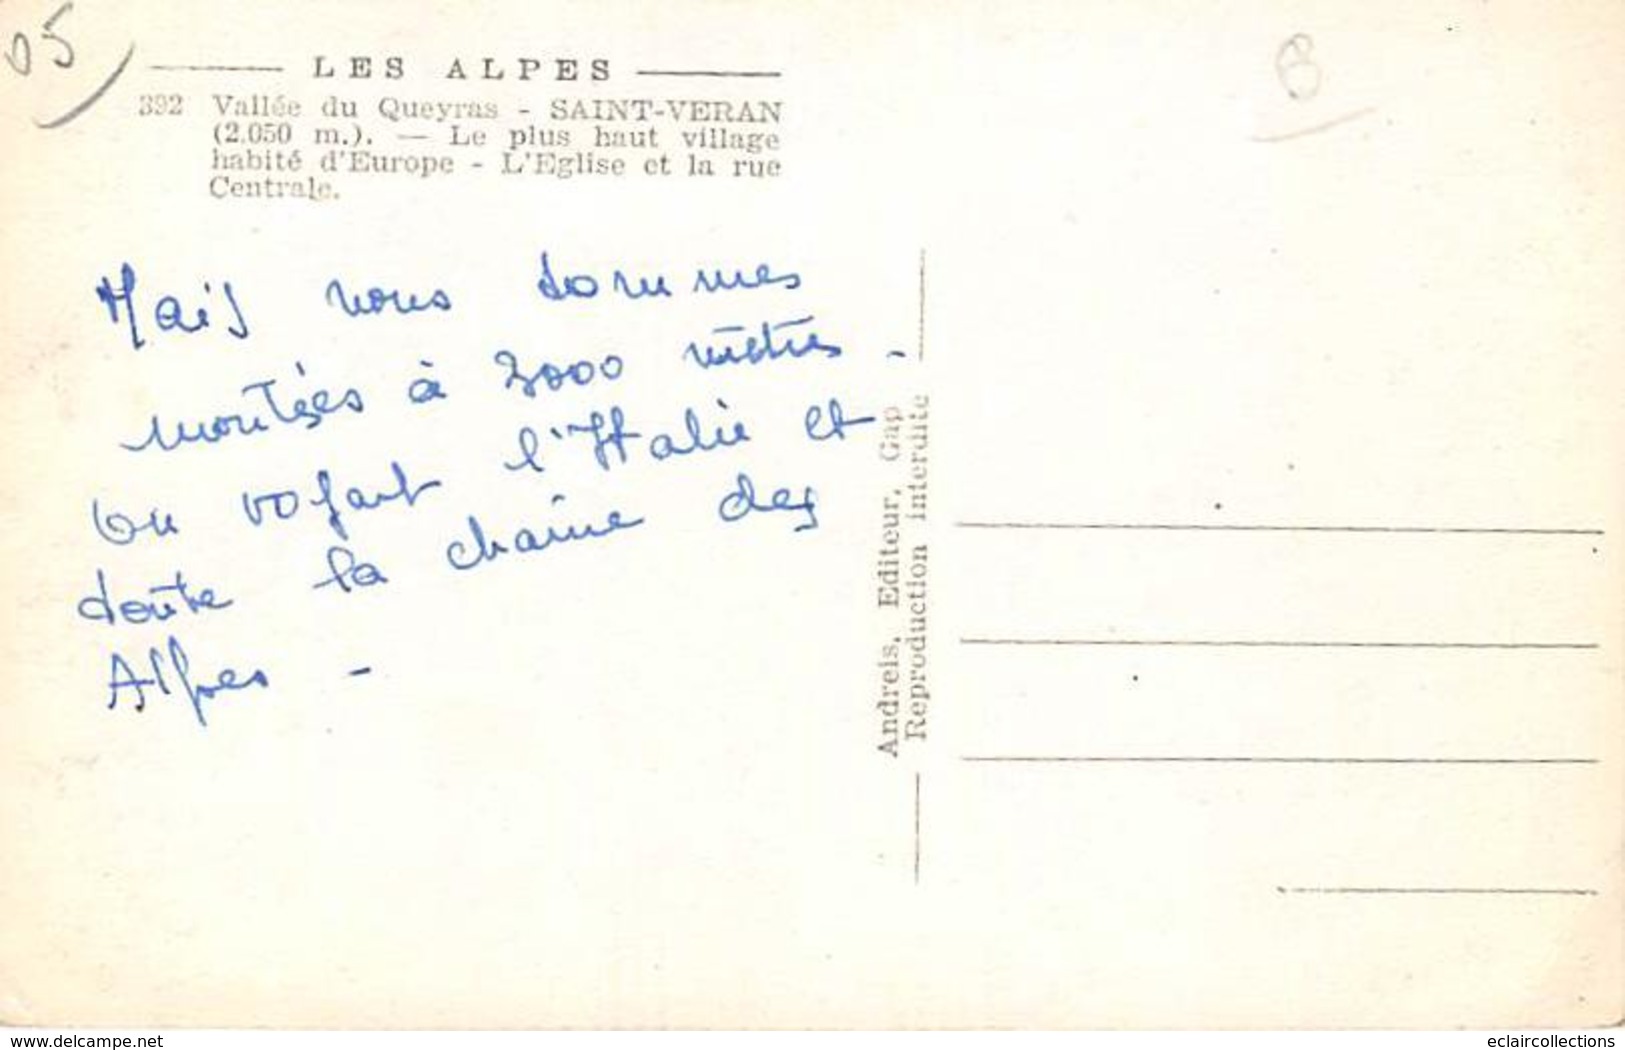 05
LES ALPES
B
392 Vallée du Queyras - SAINT-VERAN
(2.050 m.). — Le plus haut village
habité d'Europe - L'Eglise et la rue
Centrale.
Mais nous sommes
montées à 3000 mètres -
on voyait l'Italie et
toute la chaine des
Alpes -
Andreis, Editeur, Gap
Reproduction interdite
www.delcampe.net
eclaircollections